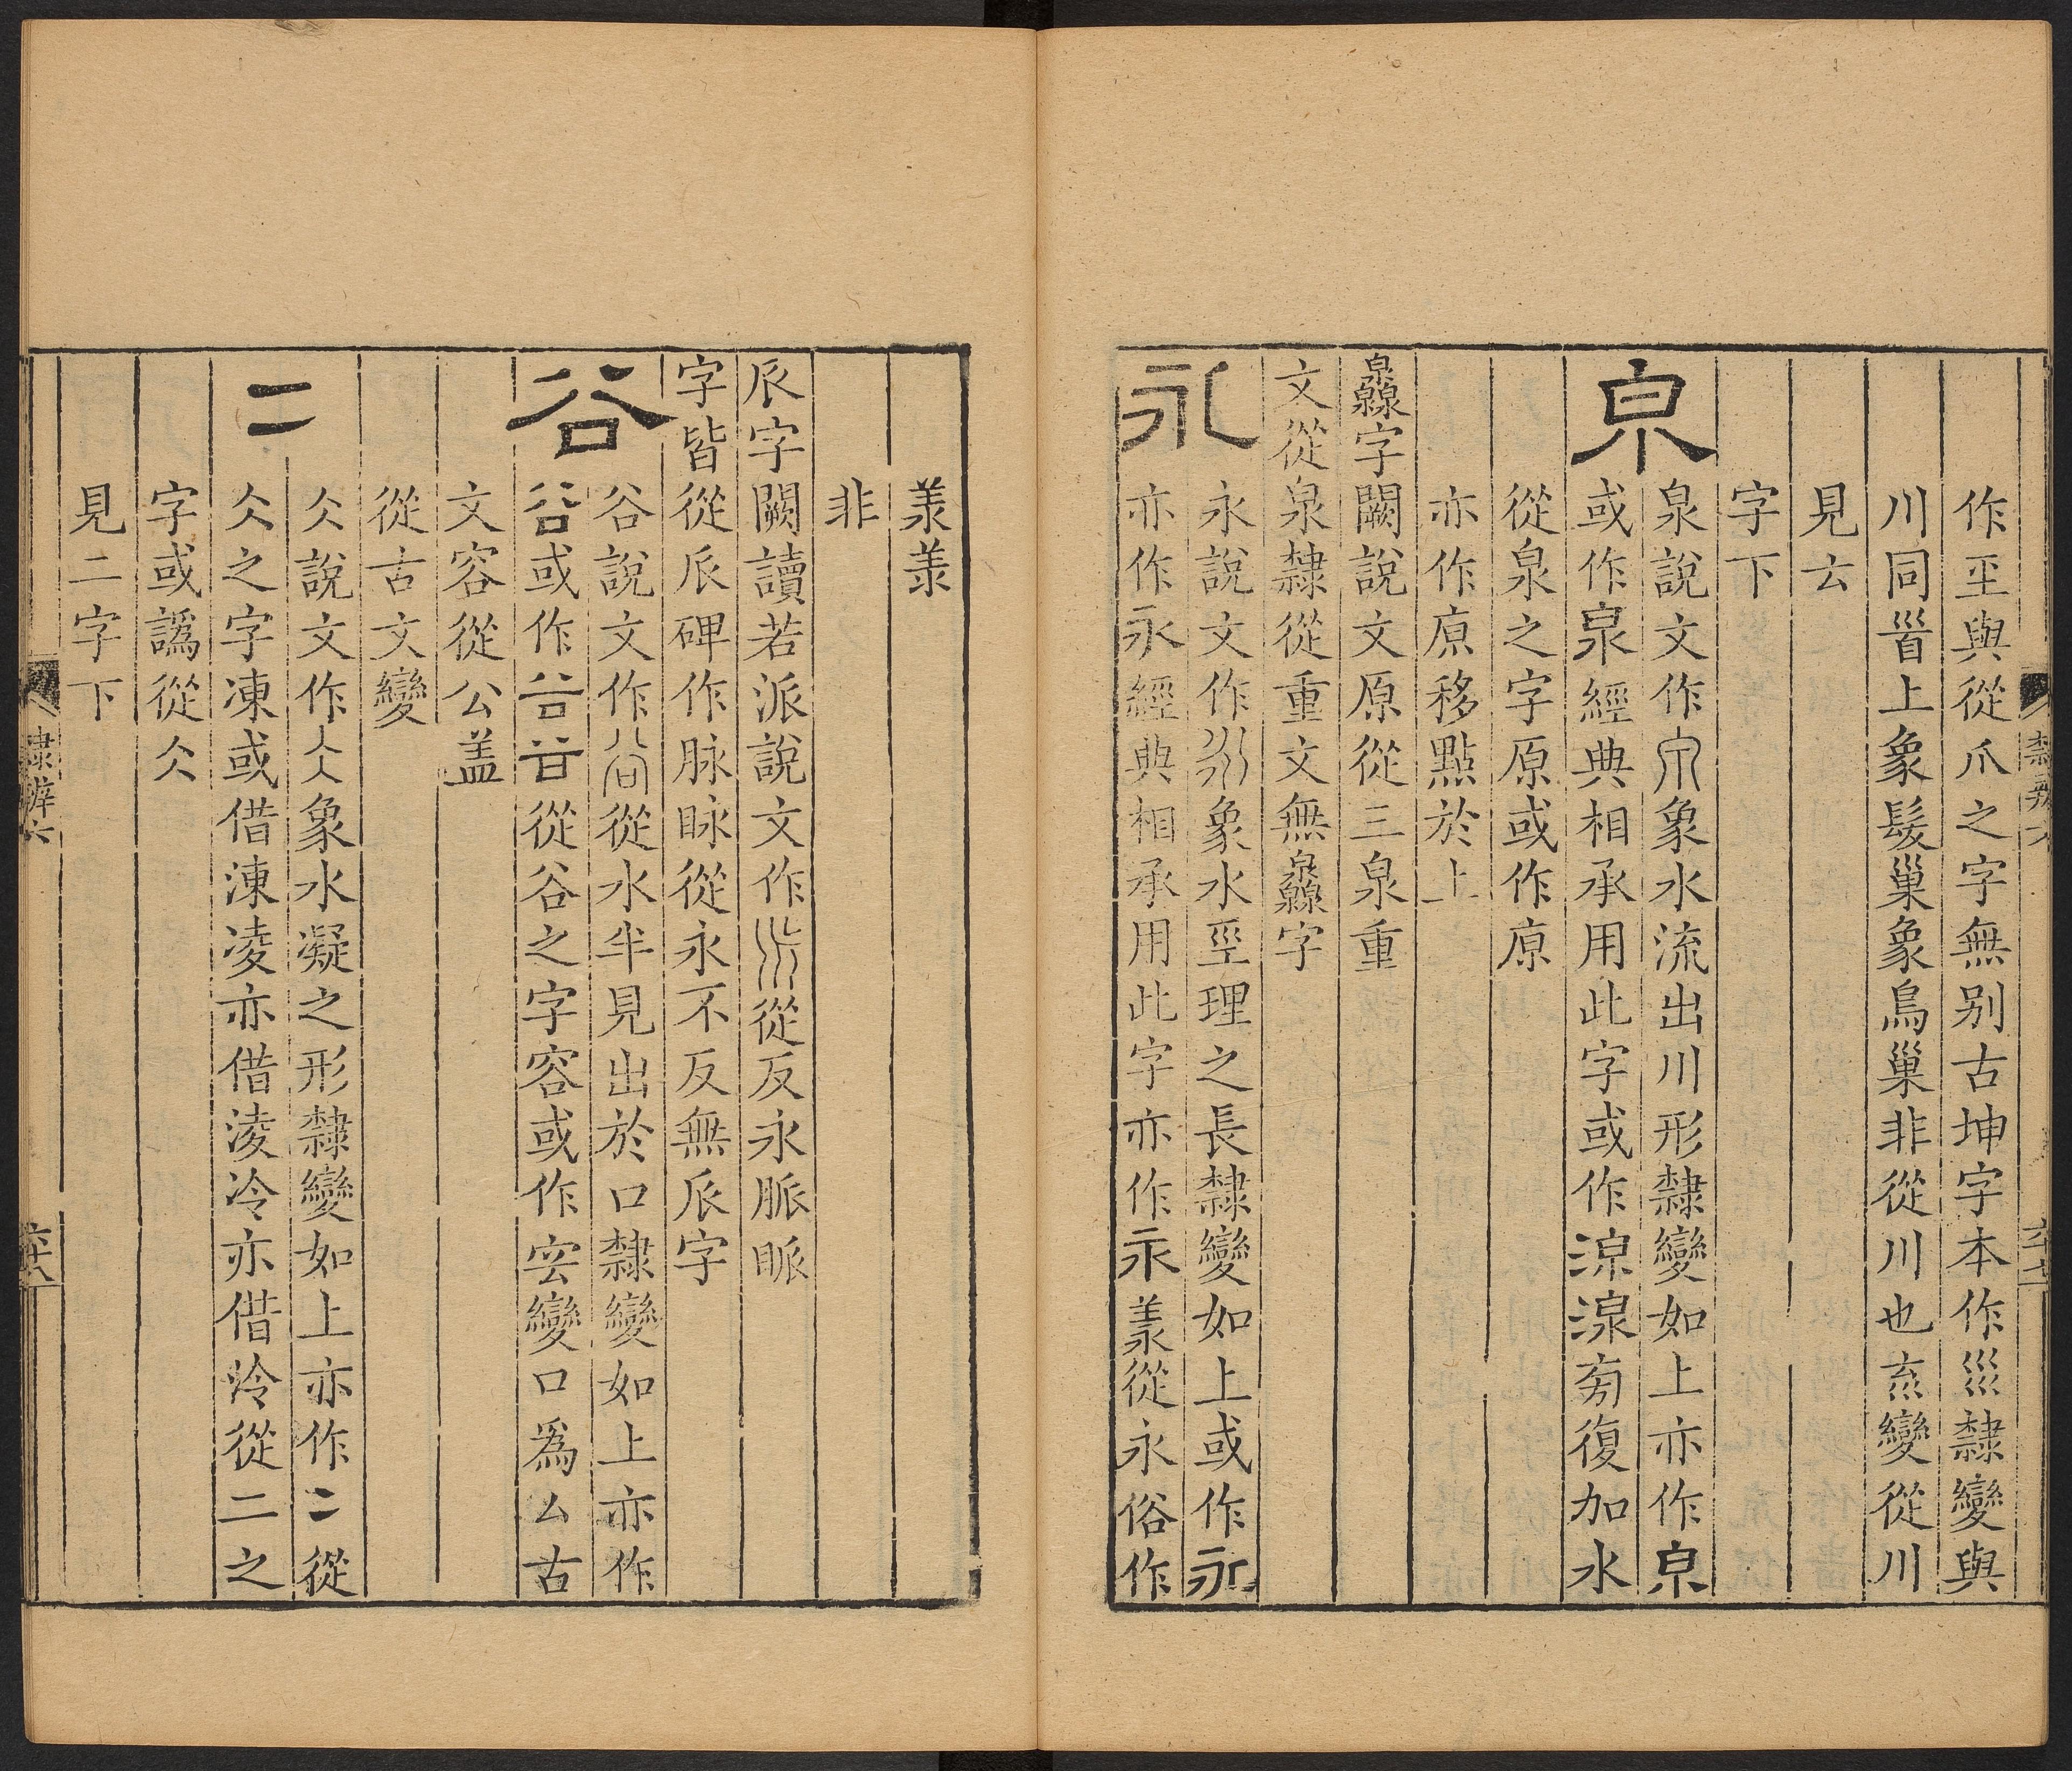 作坙與從爪之字無别古坤字本作巛隸變與
川同𩠐上象髮巢象鳥巢非從川也㐬變從川
見𠫓
字下
泉
泉說文作𤽄象水流出川形隸變如上亦作泉
或作泉經典相承用此字或作湶湶旁復加水
從泉之字原或作厡
亦作厡移點於上
灥字闕說文原從三泉重
文從泉隸從重文無灥字
永
永說文作永象水巠理之長隸變如上或作永
亦作永經典相承用此字亦作永羕從永俗作
羕羕
非
𠂢字闕讀若派說文作𠂢從反永脈眽
字皆從𠂢碑作脉眿從永不反無𠂢字
谷
谷說文作谷從水半見出於口隸變如上亦作
谷或作谷谷從谷之字容或作㝐變口爲厶古
文容從公盖
從古文變
二
仌說文作仌象水凝之形隸變如上亦作二從
仌之字凍或借涷凌亦借淩冷亦借泠從二之
字或譌從仌
見二字下
隸辨六
六十八